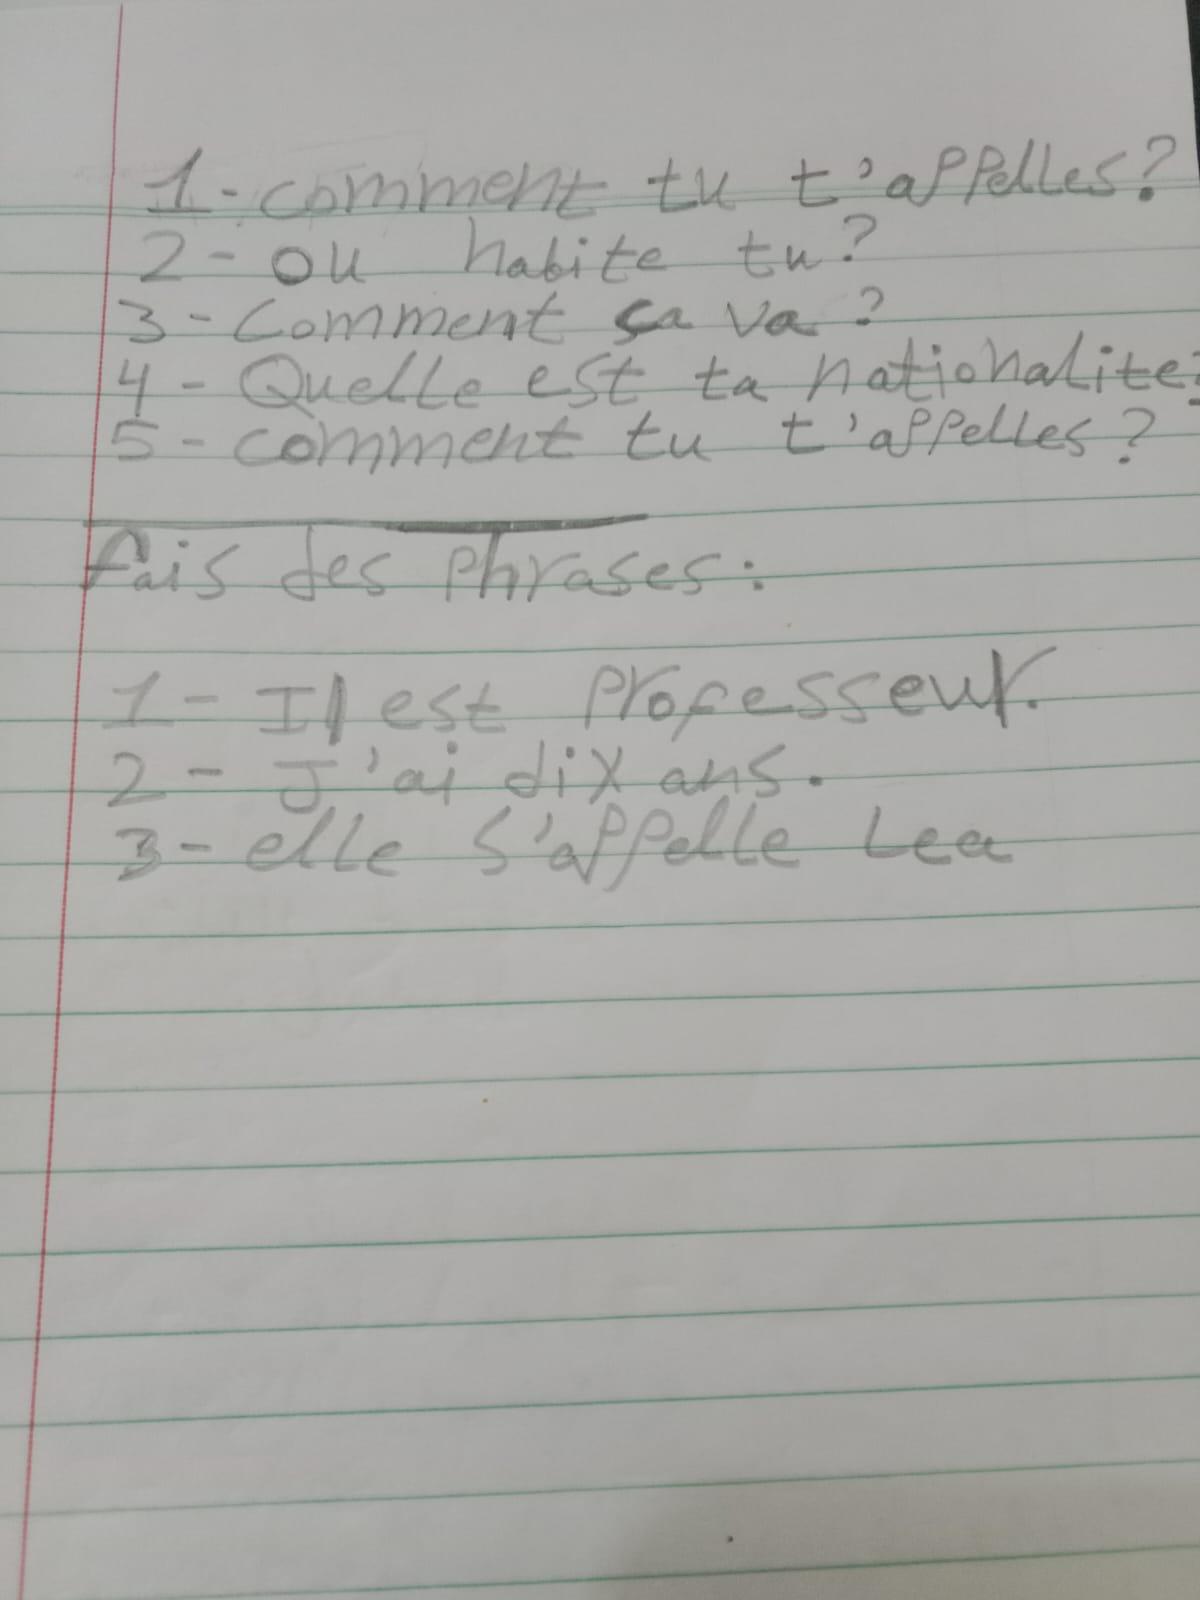 1-comment tu t'appelles?
2- ou habite tu?
3- Comment ça va?
4- Quelle est ta nationalite?
5- comment tu t'appelles?
fais des phrases:
1- Il est professeur.
2- J'ai dix ans.
3- elle s'appelle Lea